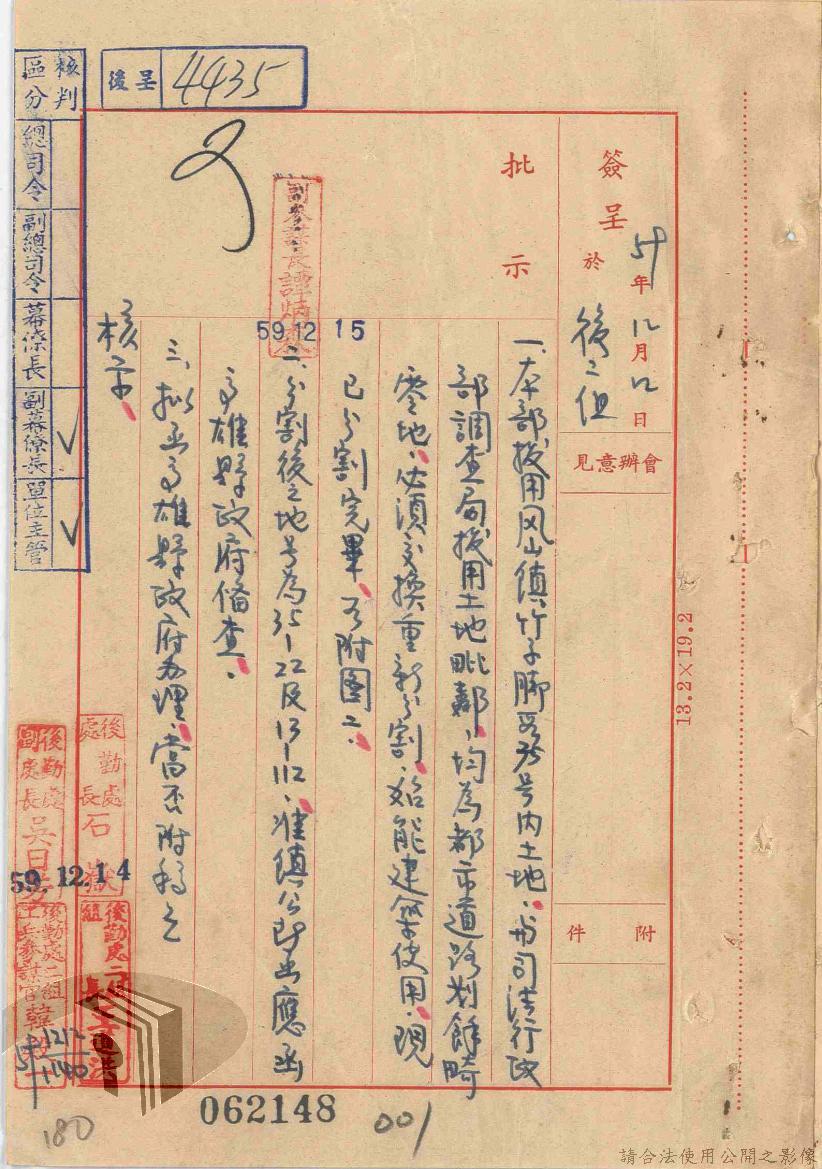 簽呈 59年12月12日
於 後二組
會辦意見
附件
批示
一、本部撥用鳳山鎮竹子脚段35号内土地、与司法行政
部調查局撥用土地毗鄰、均為都市道路划餘畸
零地、必須交換重新分割、始能建築使用、現
已分割完畢、如附图二、
二、分割後之地号為35-22及13-112、准鎮公所出應函
高雄縣政府俻查、
三、拟函高雄縣政府办理、當否附稿乞
核示、
後呈 4435
核判區分
總司令
副總司令
幕僚長
副幕僚長 ✓
單位主管 ✓
59.12.15
後勤處處長石
後勤處副處長吳
59.12.14
後勤處二組組長
後勤處二組工兵參謀官韓
59 1212 1140
13.2×19.2
062148
001
180
請合法使用公開之影像